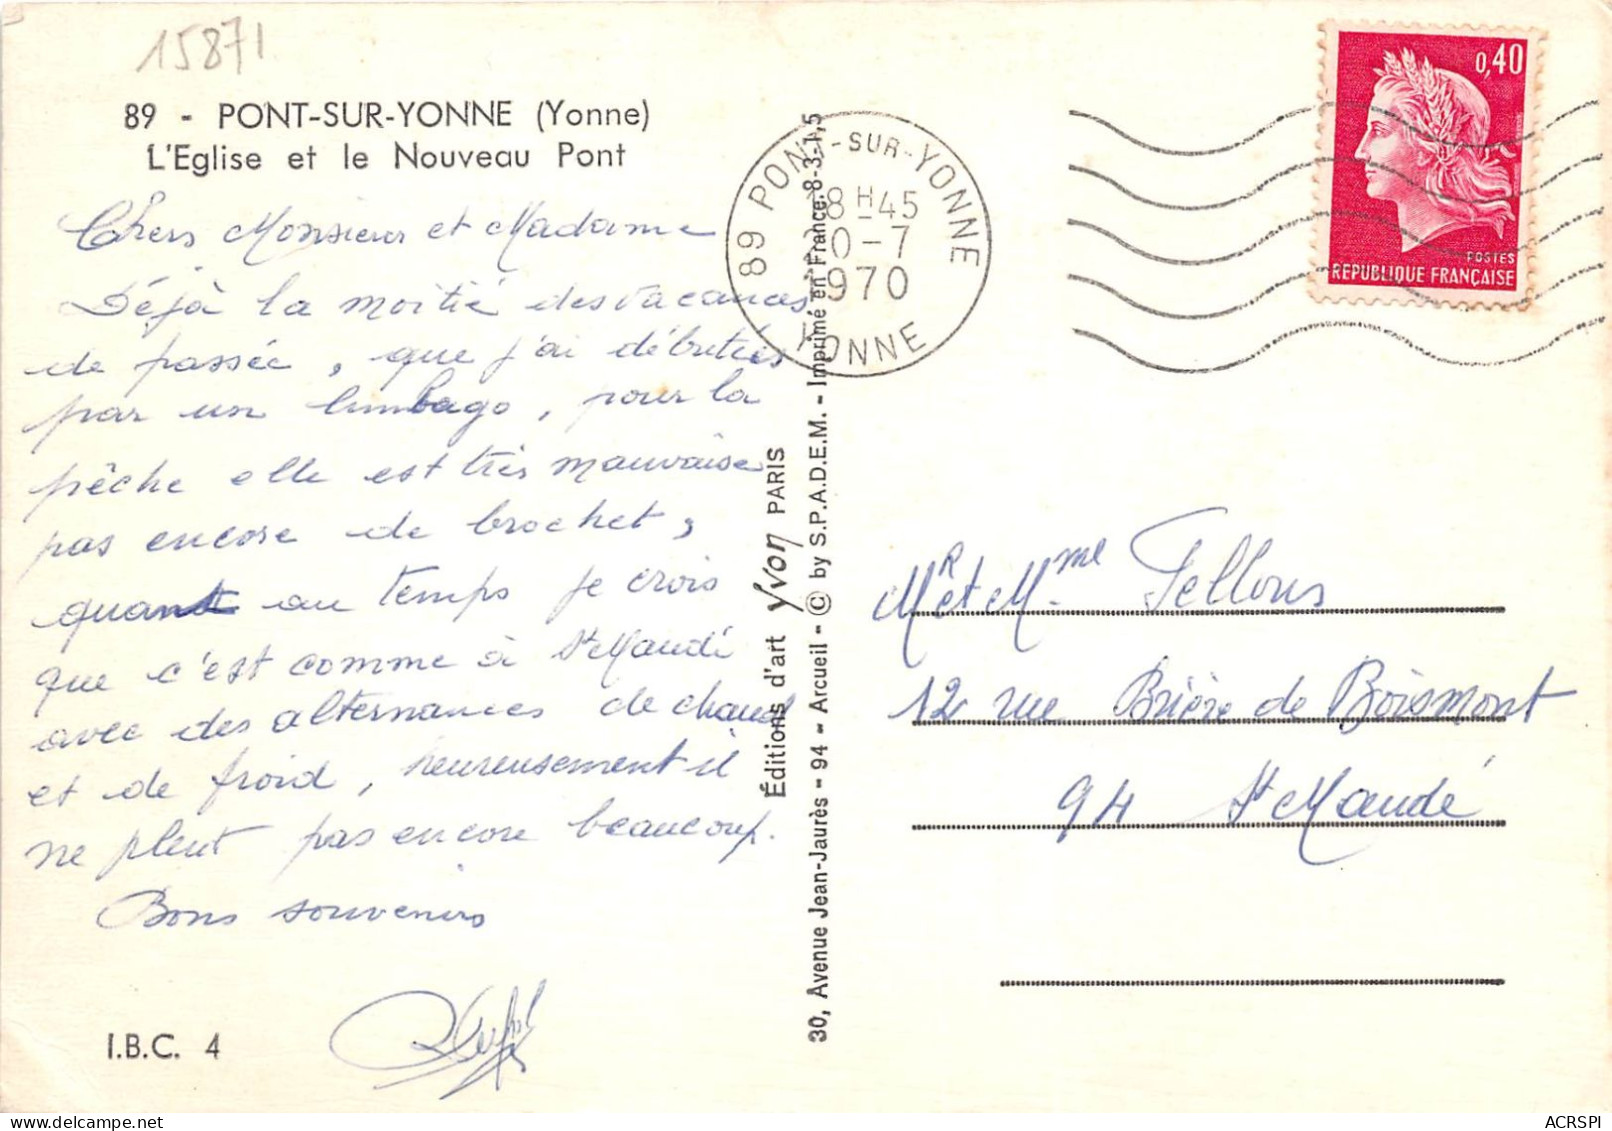 15871
89 - PONT-SUR-YONNE (Yonne)
L'Eglise et le Nouveau Pont
Chers Monsieur et Madame
Déjà la moitié des vacances
de passée, que j'ai débutées
par un lumbago, pour la
pêche elle est très mauvaise
pas encore de brochet,
quant au temps je crois
que c'est comme à St Mandé
avec des alternances de chaud
et de froid, heureusement il
ne pleut pas encore beaucoup.
Bons souvenirs
I.B.C. 4
Éditions d'art Yvon PARIS
30, Avenue Jean-Jaurès - 94 - Arcueil - © by S.P.A.D.E.M. - Imprimé en France. 8-3-1,5
89 PONT-SUR-YONNE
18 H 45
10-7
1970
YONNE
0,40
POSTES
REPUBLIQUE FRANÇAISE
MR et Mme Tellous
12 rue Brière de Boismont
94 St Mandé
ACRSPI